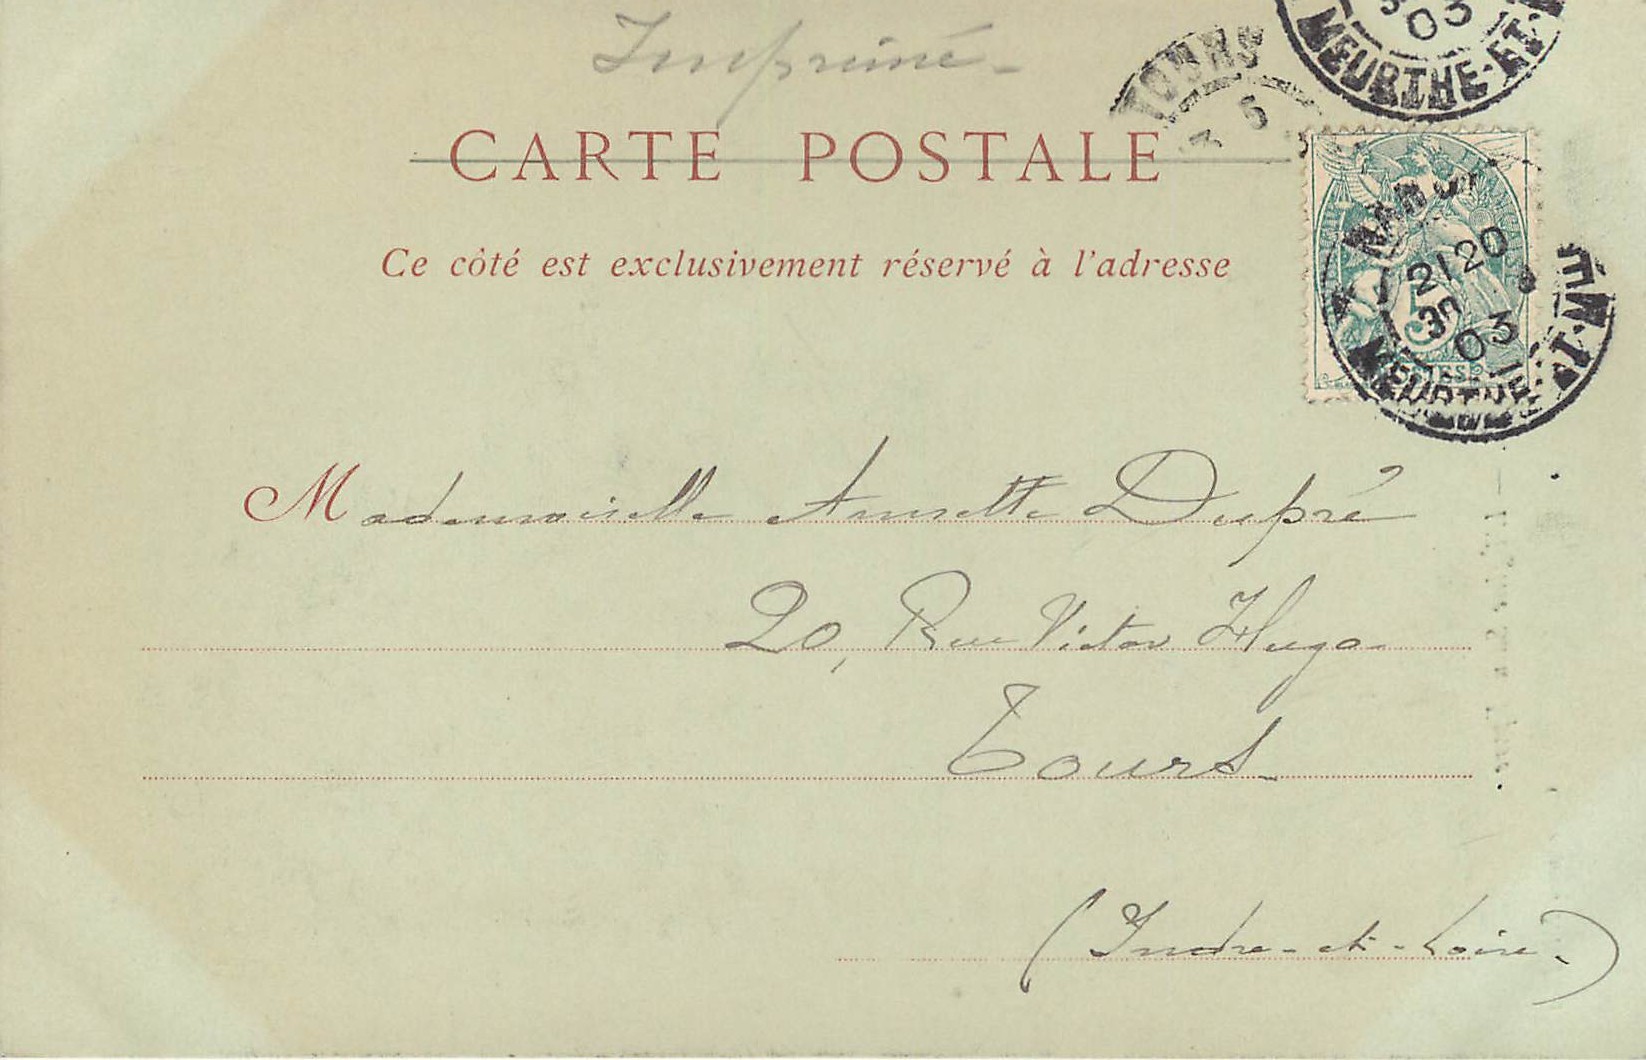 Imprimé-
03
MEURTHE-ET-
TOURS
5
CARTE POSTALE
Ce côté est exclusivement réservé à l'adresse
NANCY
21 20
03
MEURTHE-ET-M
5
Mademoiselle Annette Dupré
20, Rue Victor Hugo-
Tours-
(Indre-et-Loire.)